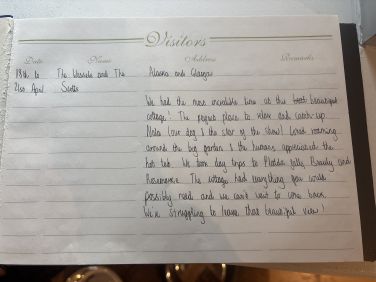 Visitors
Date Name Address Remarks
18th to The Wessels and The Alaska and Glasgow
21st April Scotts
We had the most incredible time at this beautiful
cottage! The perfect place to relax and catch-up.
Mala (our dog) was the star of the show! Loved roaming
around the big garden & the humans appreciated the
hot tub. We took day trips to Plodda Falls, Beauly and
Rosemarkie. The cottage had everything you could
possibly need and we can't wait to come back.
We're struggling to leave that beautiful view!